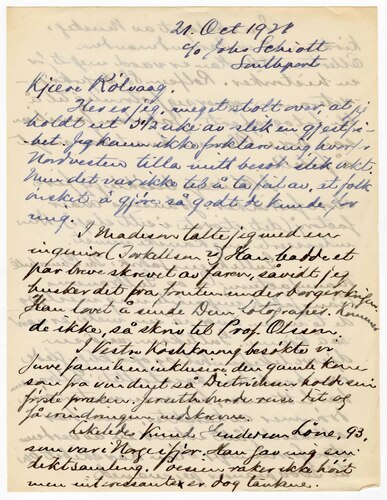 21. Oct 1928
c/o John Schiott
Southport
Kjære Rölvaag.
Her er jeg, meget stolt over, at jeg
holdt ut 3½ uke av slik en gjestfri-
het. Jeg kann ikke forklare mig hvorfor
Nordvesten tilla mitt besök slik vekt.
Men det var ikke til å ta feil av, at folk
önsket å gjöre så godt de kunde for
mig.
I Madison talte jeg med en
ingeniör (Torkelson?) Han hadde et
par breve skrevet av faren, såvidt jeg
husker det fra fronten under borgerkrigen
Han lovet å sende Dem fotografier. Kommer
de ikke, så skriv til Prof. Olsson.
I Vestre Koshkonong besökte vi
Juve familien inklusive den gamle kone
som fra vindvet så Dietrichson holde sin
förste preken. Jeg
få erindringen nedskreven.
Likeledes Knud Löne, 93,
som var i Norge ifjor. Han gav mig en
diktsamling. Versene raker ikke höit
men interessante er dog tankene.